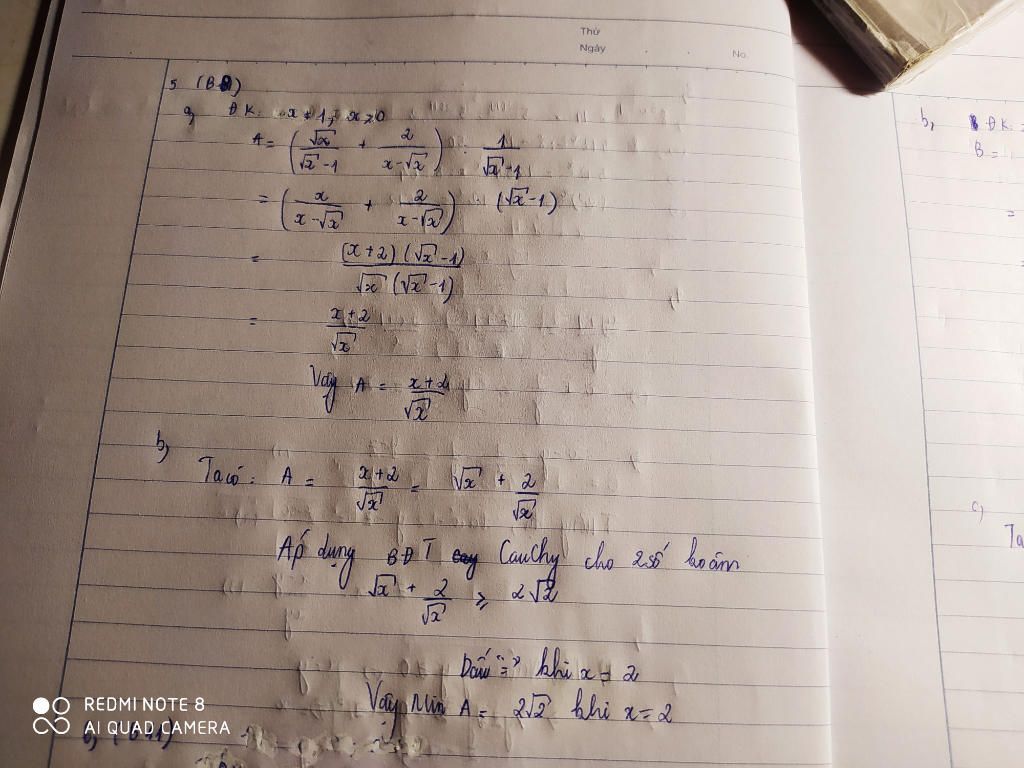 Thứ
Ngày
No.
5 (B2)
a, ĐK: x ≠ 1; x > 0
A = (√x/(√x - 1) + 2/(x - √x)) : 1/(√x - 1)
= (x/(x - √x) + 2/(x - √x)) . (√x - 1)
= (x + 2)(√x - 1)/(√x(√x - 1))
= (x + 2)/√x
Vậy A = (x + 2)/√x
b,
Ta có: A = (x + 2)/√x = √x + 2/√x
Áp dụng BĐT Cauchy cho 2 số
√x + 2/√x ≥ 2√2
Dấu "=" khi x = 2
Vậy Min A = 2√2 khi x = 2
b, ĐK:
B =
=
c,
Ta
REDMI NOTE 8
AI QUAD CAMERA